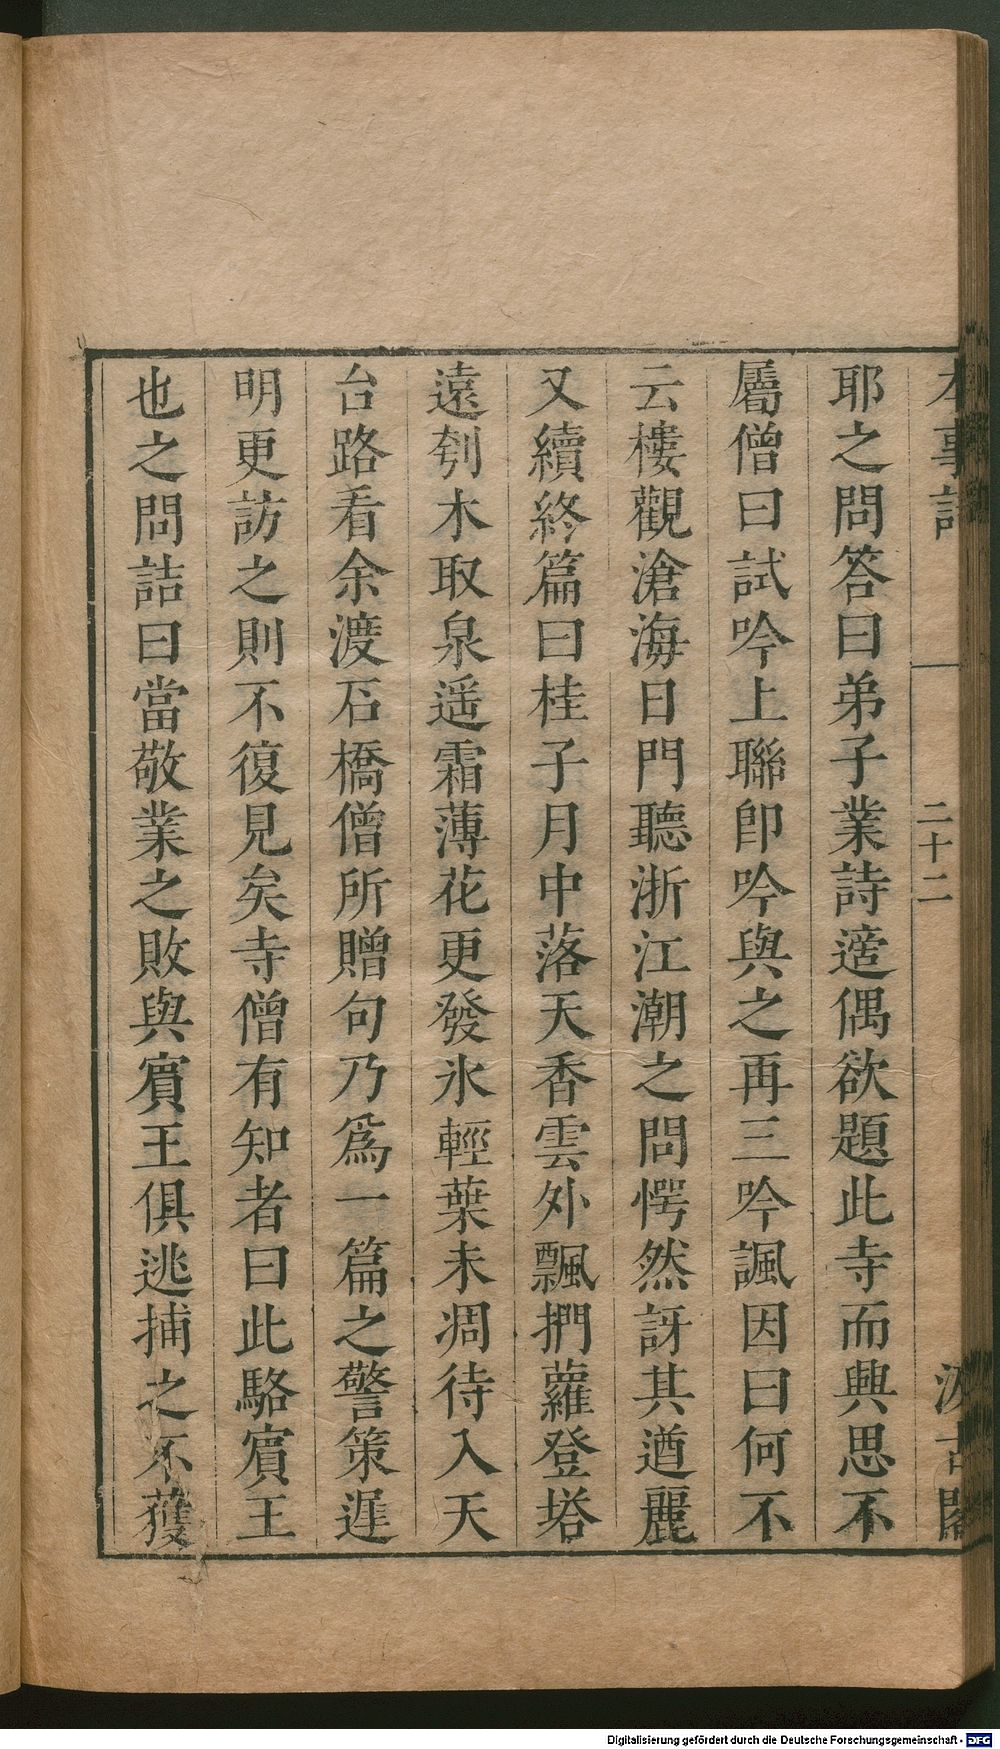 本事詩 二十二 汲古閣
耶之問答曰弟子業詩適偶欲題此寺而興思不
屬僧曰試吟上聯卽吟與之再三吟諷因曰何不
云樓觀滄海日門聽浙江潮之問愕然訝其遒麗
又續終篇曰桂子月中落天香雲外飄捫蘿登塔
遠刳木取泉遥霜薄花更發氷輕葉未凋待入天
台路看余渡石橋僧所贈句乃爲一篇之警策遲
明更訪之則不復見矣寺僧有知者曰此駱賔王
也之問詰曰當敬業之敗與賔王俱逃捕之不獲
Digitalisierung gefördert durch die Deutsche Forschungsgemeinschaft - DFG